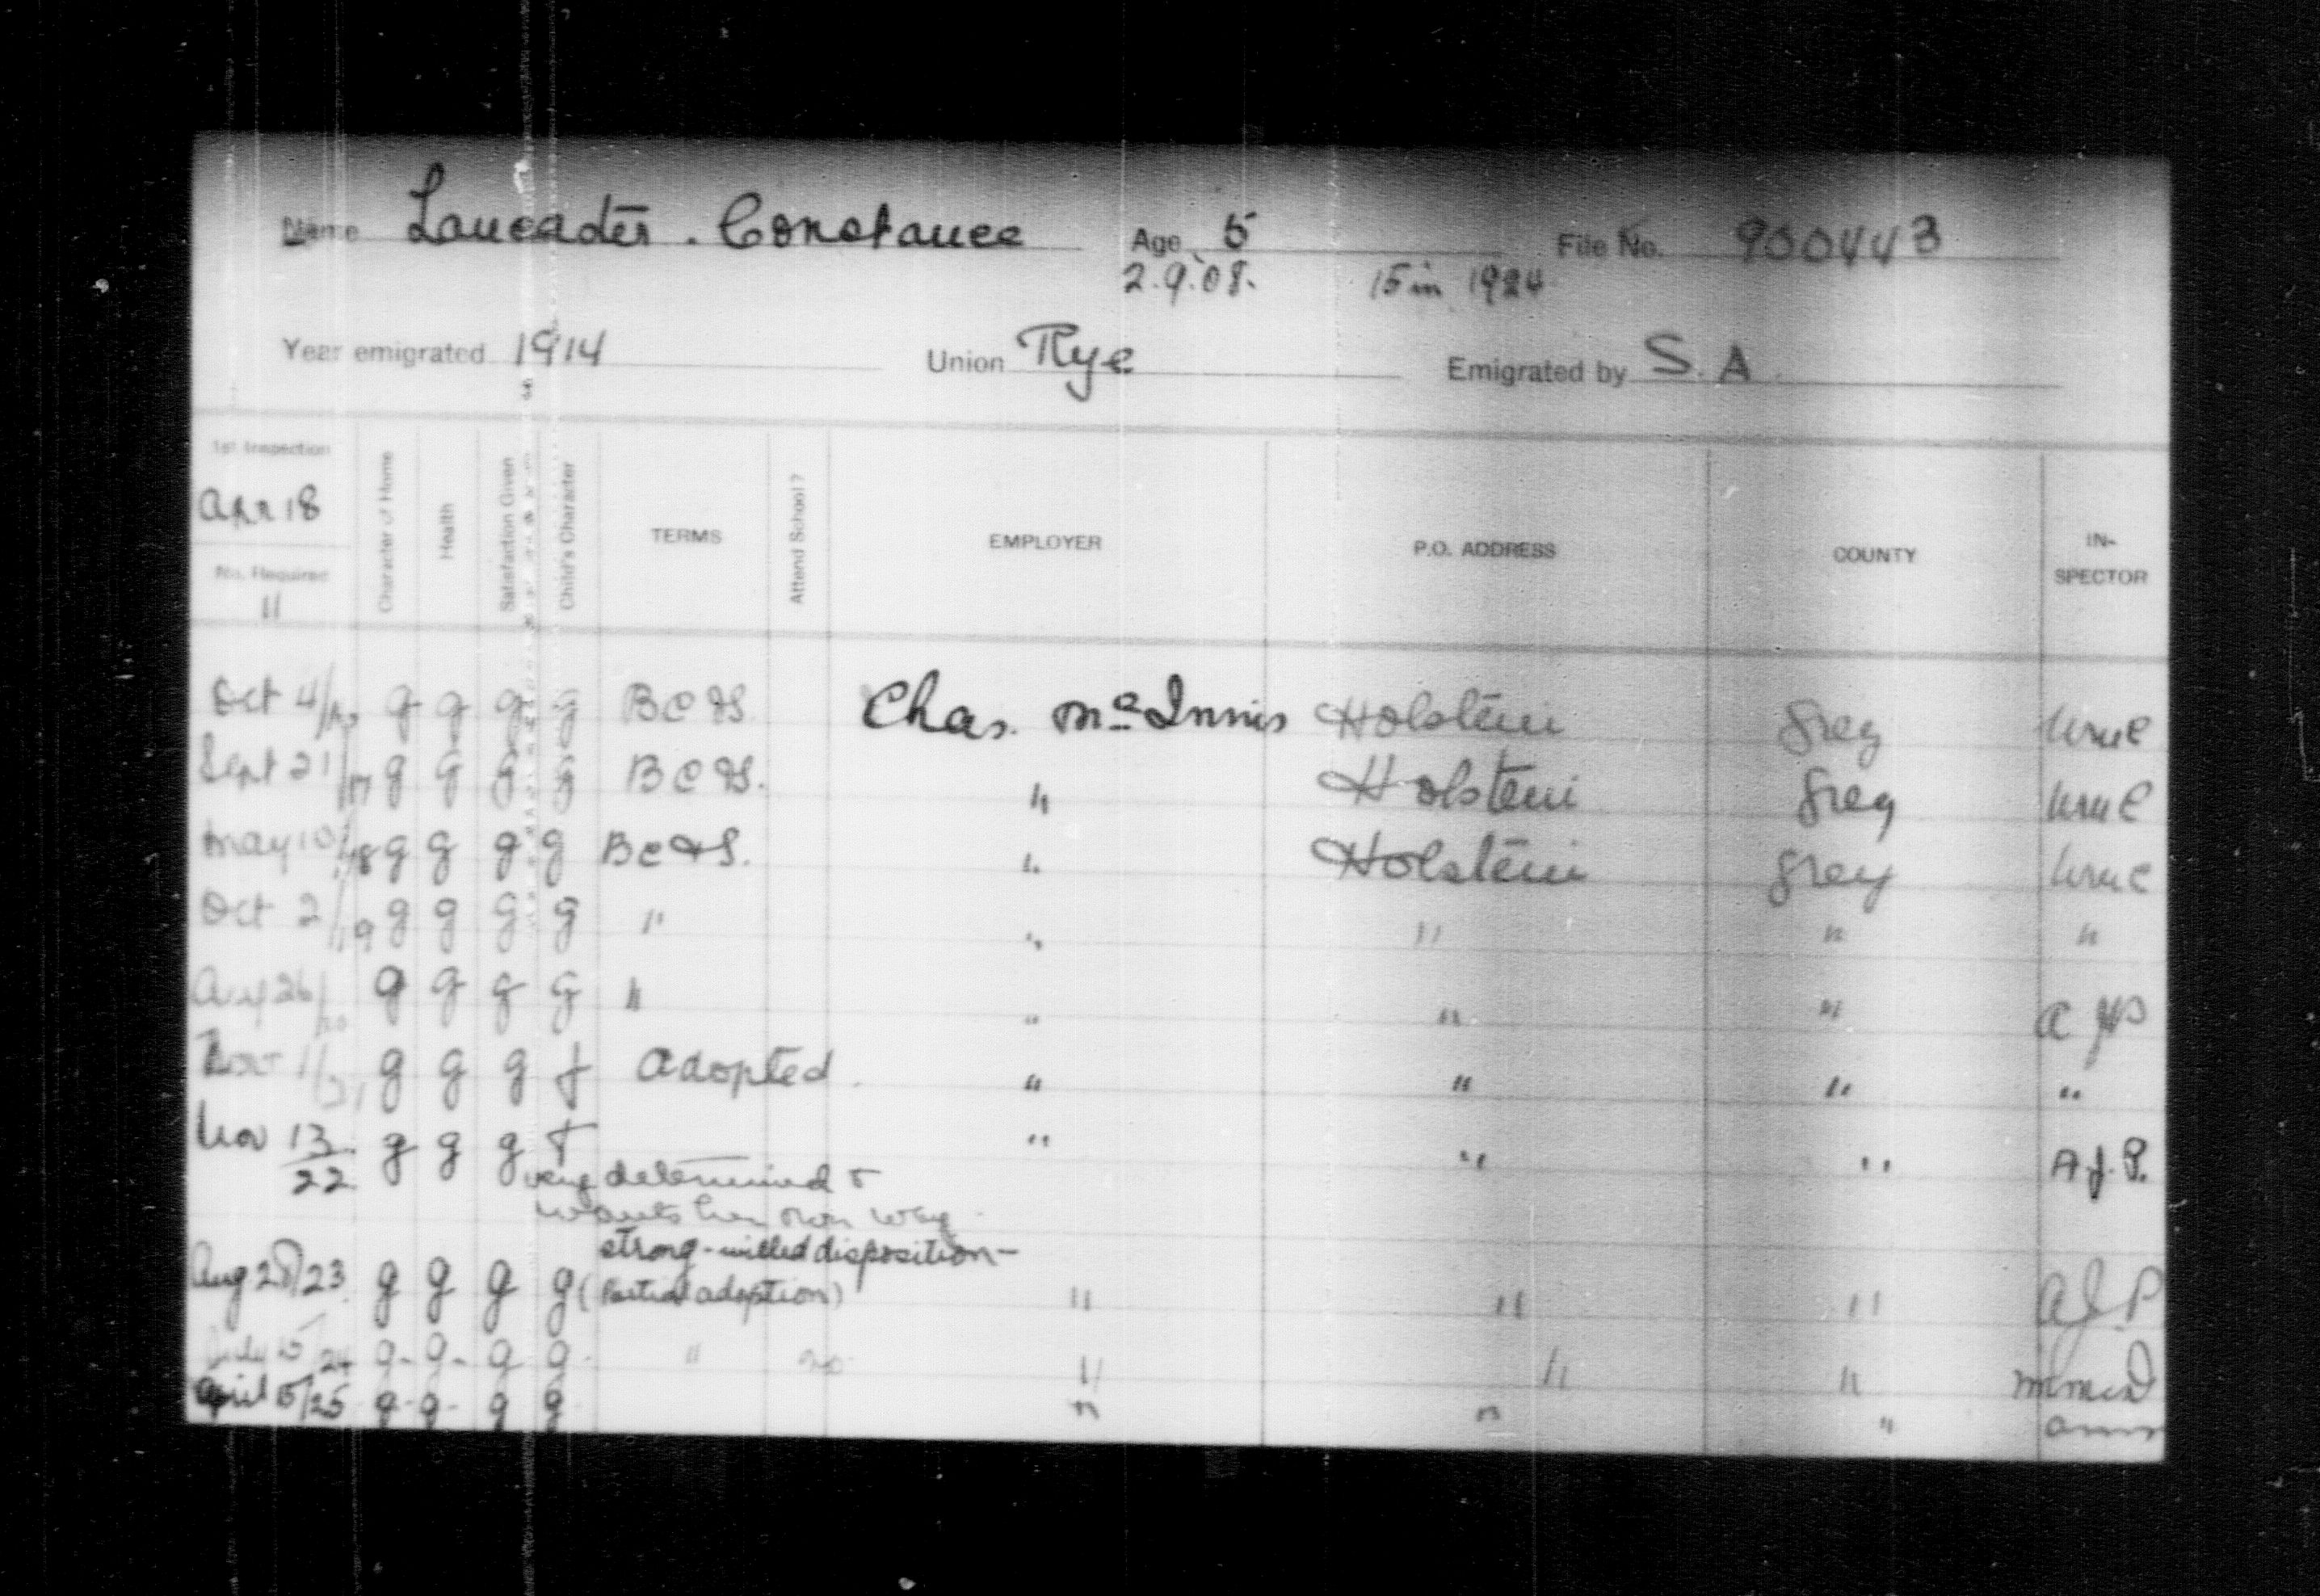 Name Lancaster. Constance Age 5 File No. 900443
2.9.08. 15 in 1924
Year emigrated 1914 Union Rye Emigrated by S. A
1st Inspection
Apr 18
No. Required
11
Character of Home
Health
Satisfaction Given
Child's Character
TERMS
Attend School?
EMPLOYER
P.O. ADDRESS
COUNTY
IN-
SPECTOR
Oct 4/ g g g g B C & S. Chas. McInnis Holstein Grey
Sept 21/17 g g g g B C & S. " Holstein Grey
May 10/18 g g g g B C & S. " Holstein Grey
Oct 2/19 g g g g " " " " "
Aug 26/20 g g g g " " " " A J P
Nov 1/21 g g g f Adopted. " " " "
Nov 13/22 g g g f " " " A.J.P.
very determined &
wants her own way.
strong-willed disposition-
Aug 28/23 g g g g (Partial adoption) " " " A J. P
July 5/24 g. g. g g. " no " " "
April 5/25 g. g. g g " " "